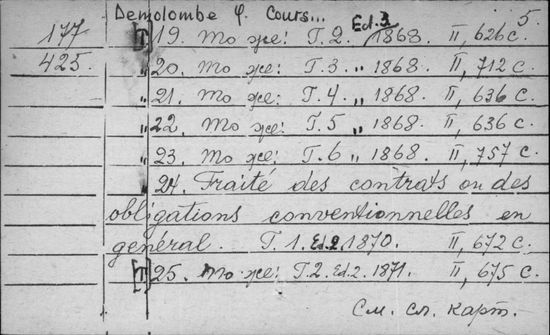 Demolombe Ф. Cours... 5.
177 [T] 19. То же: Т. 2. Ed. 3 1868. II, 626 с.
425. „ 20. То же: Т. 3. „ 1868. II, 712 с.
„ 21. То же: Т. 4. „ 1868. II, 636 с.
„ 22. То же: Т. 5 „ 1868. II, 636 с.
„ 23. То же: Т. 6 „ 1868. II, 757 с.
„ 24. Traité des contrats ou des
obligations conventionnelles en
général. Т. 1. Ed. 2. 1870. II, 672 с.
[T] 25. То же: Т. 2. Ed. 2. 1871. II, 675 с.
См. сл. карт.